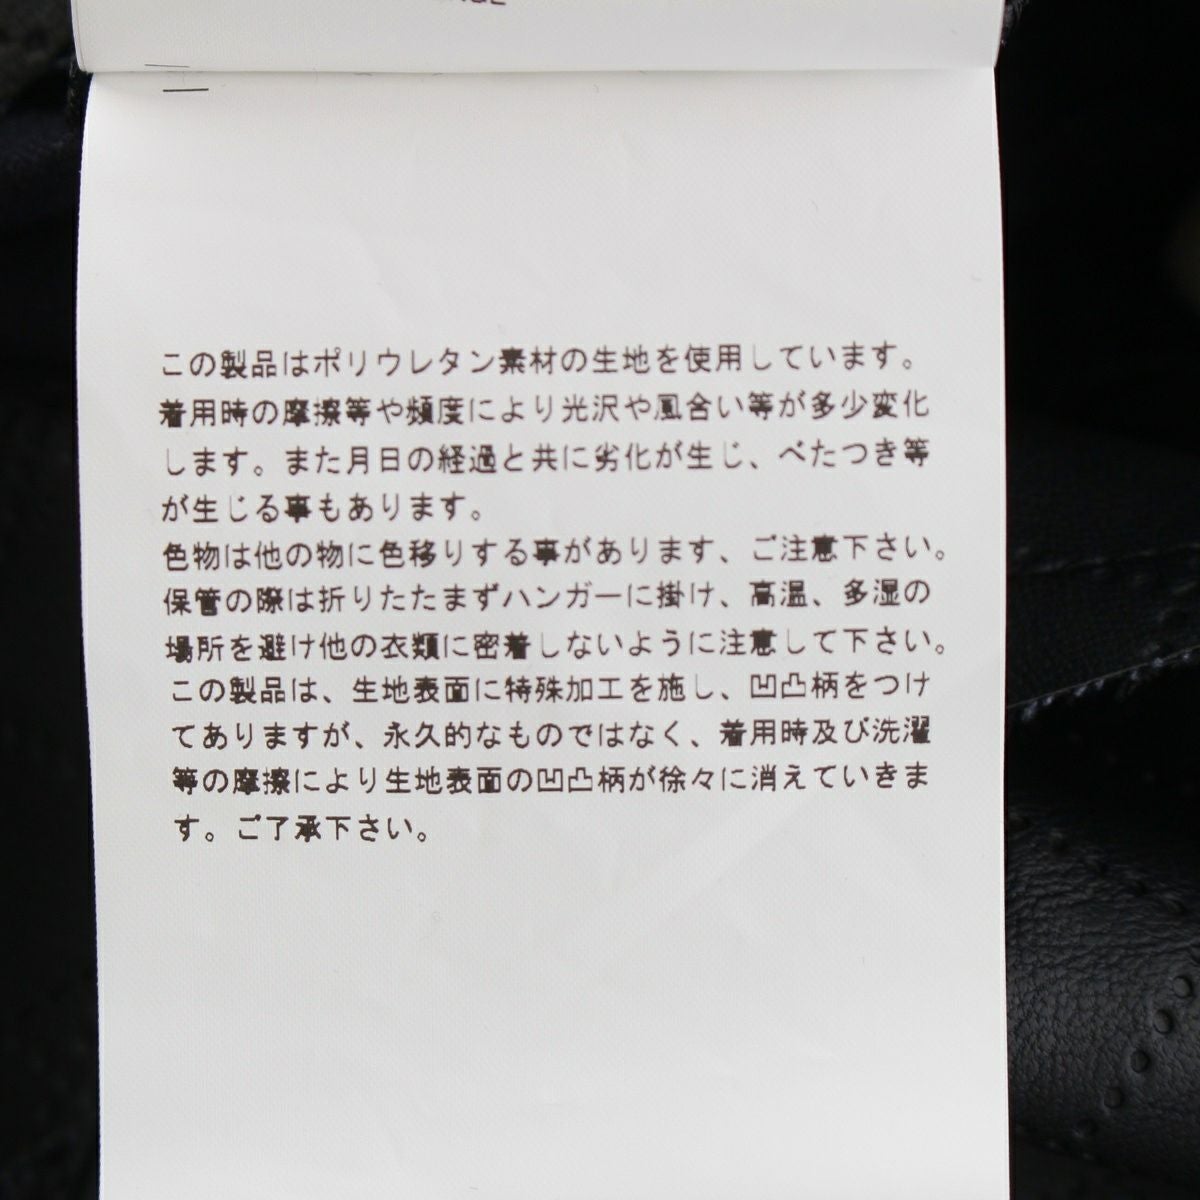 この製品はポリウレタン素材の生地を使用しています。
着用時の摩擦等や頻度により光沢や風合い等が多少変化
します。また月日の経過と共に劣化が生じ、べたつき等
が生じる事もあります。
色物は他の物に色移りする事があります、ご注意下さい。
保管の際は折りたたまずハンガーに掛け、高温、多湿の
場所を避け他の衣類に密着しないように注意して下さい。
この製品は、生地表面に特殊加工を施し、凹凸柄をつけ
てありますが、永久的なものではなく、着用時及び洗濯
等の摩擦により生地表面の凹凸柄が徐々に消えていきま
す。ご了承下さい。